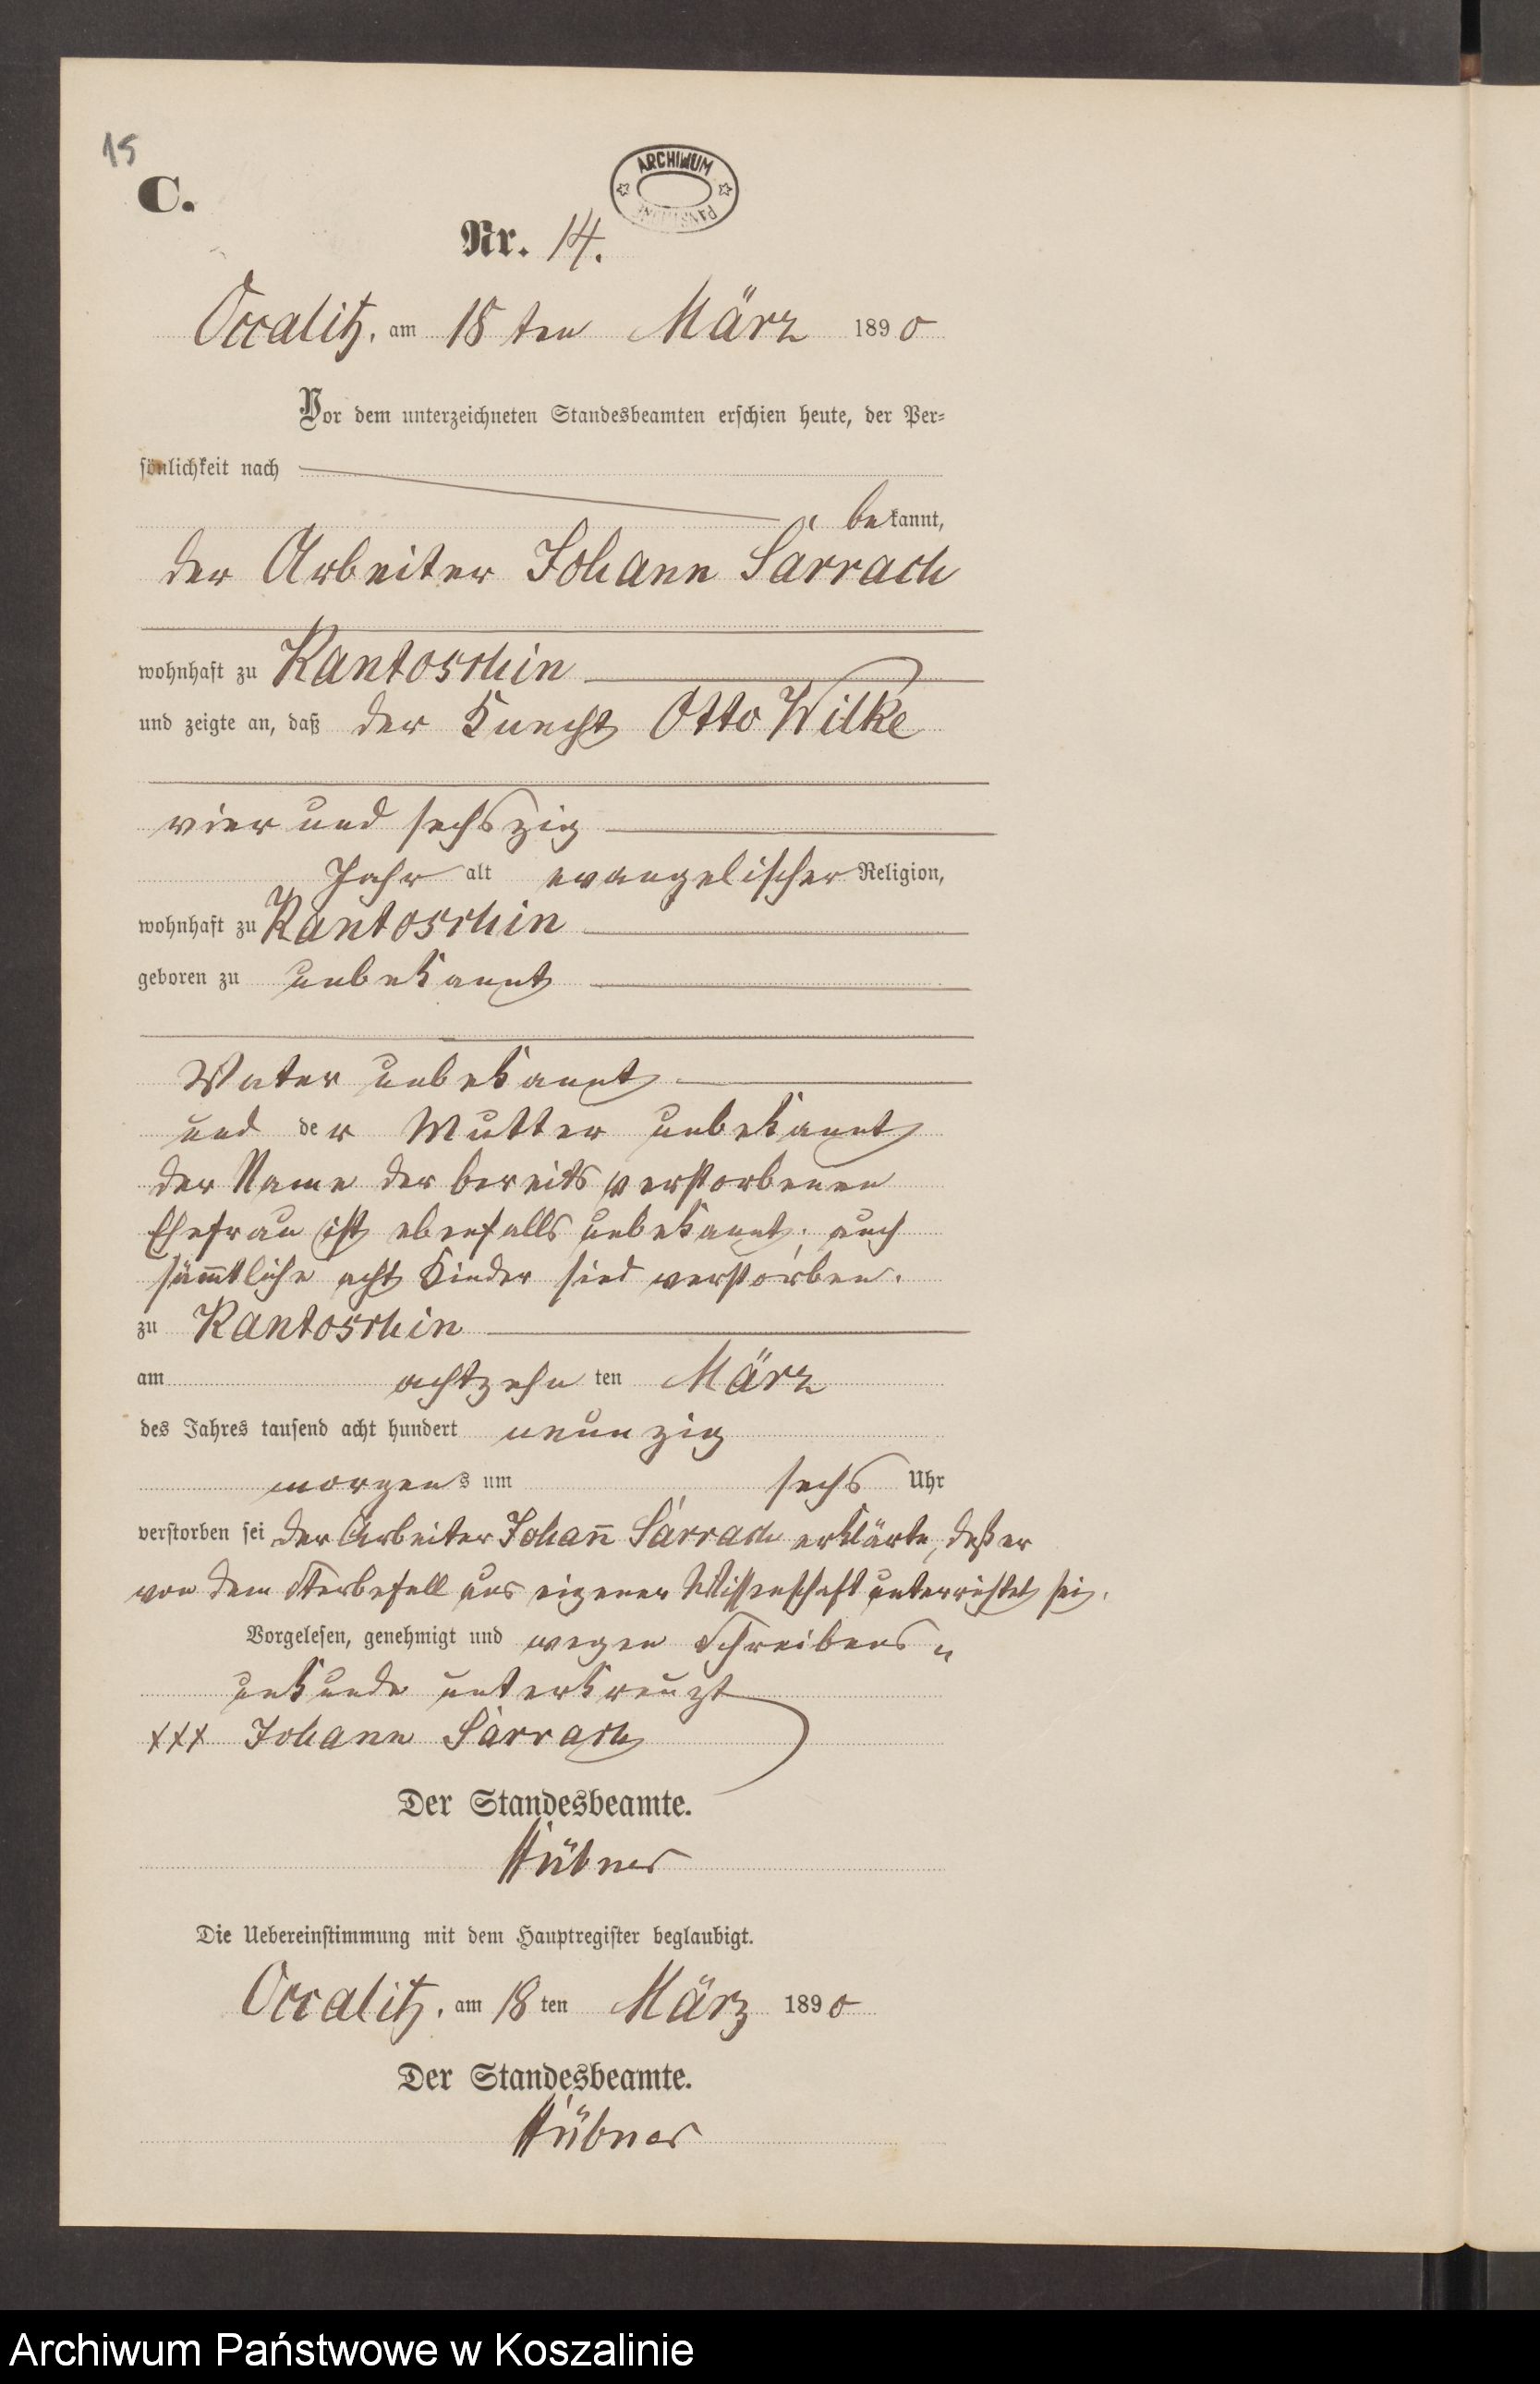 15
C.
ARCHIWUM
PAŃSTWOWE
Nr. 14.
Occalitz, am 18 ten März 1890
Vor dem unterzeichneten Standesbeamten erschien heute, der Per-
sönlichkeit nach
bekannt,
der Arbeiter Johann Sarrach
wohnhaft zu Kantoschin
und zeigte an, daß der Knecht Otto Wilke
vier und sechszig
Jahr alt evangelischer Religion,
wohnhaft zu Kantoschin
geboren zu unbekannt
Vater unbekannt
und der Mutter unbekannt
der Name der bereits verstorbenen
Ehefrau ist ebenfalls unbekannt; auch
säm̅tliche acht Kinder sind verstorben.
zu Kantoschin
am achtzehn ten März
des Jahres tausend acht hundert neunzig
morgens um sechs Uhr
verstorben sei der Arbeiter Johan̅ Sarrach erklärte, daß er
von dem Sterbefall aus eigener Wissenschaft unterrichtet sei.
Vorgelesen, genehmigt und wegen Schreibens „
unkunde unterkreuzt
xxx Johann Sarrach
Der Standesbeamte.
Hübner
Die Uebereinstimmung mit dem Hauptregister beglaubigt.
Occalitz, am 18 ten März 1890
Der Standesbeamte.
Hübner
Archiwum Państwowe w Koszalinie